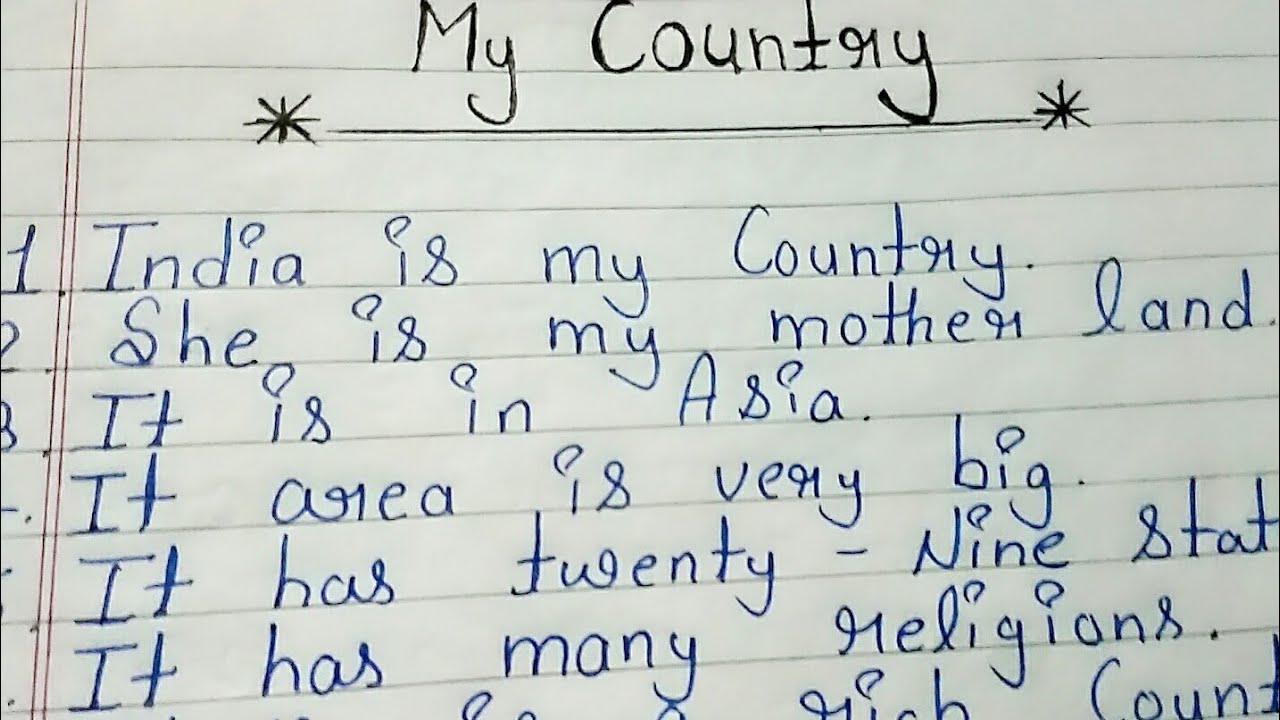 My Country
1. India is my Country.
2. She is my mother land.
3. It is in Asia.
It area is very big.
It has twenty-Nine stat
It has many religions.
is a rich Count